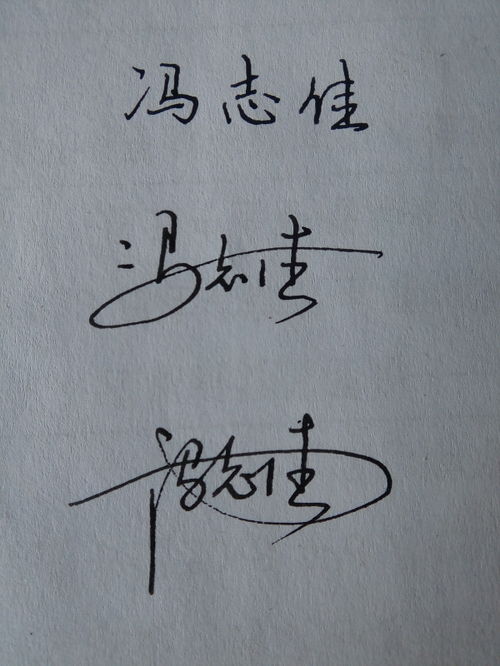 冯志佳
冯志佳
冯志佳